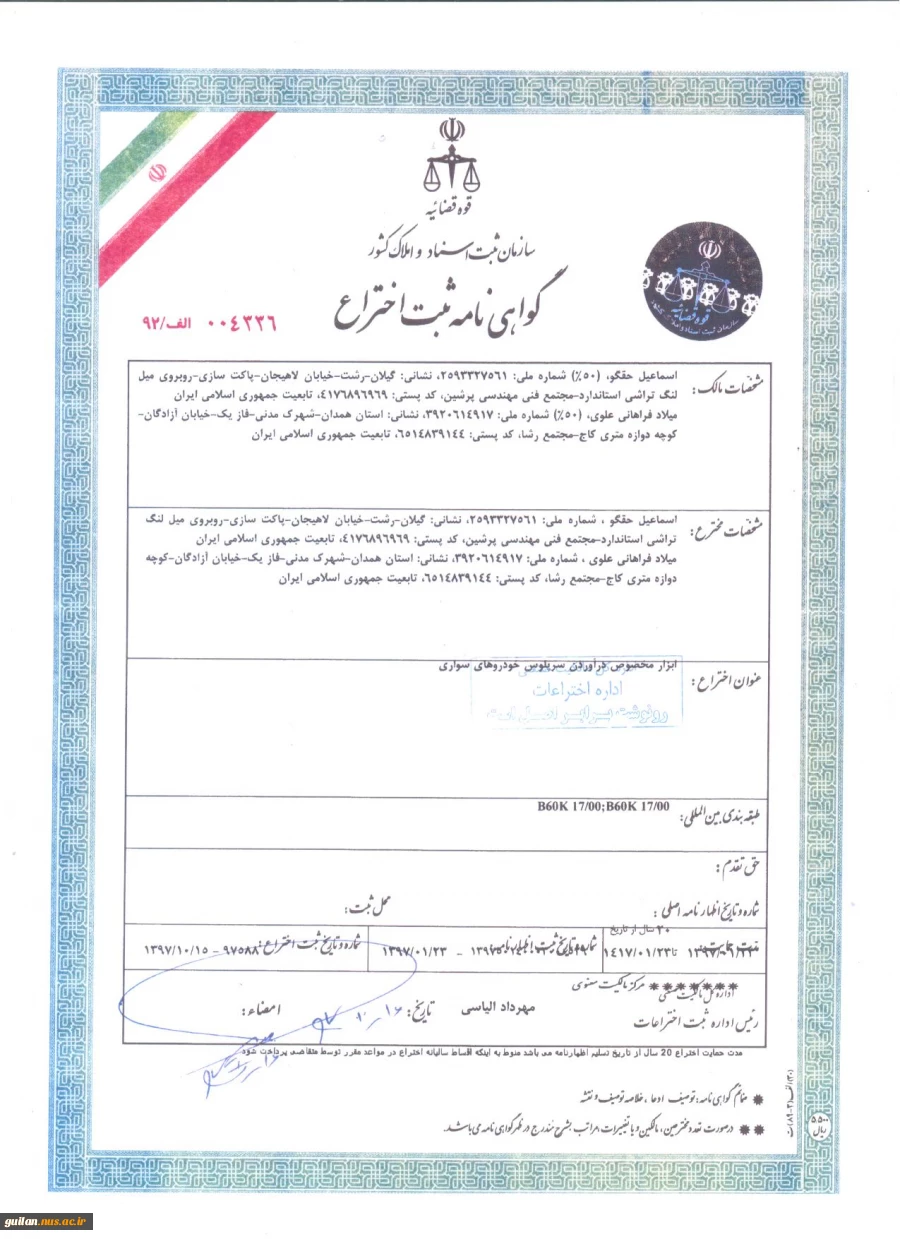 قوه قضائیه
سازمان ثبت اسناد و املاک کشور
گواهی نامه ثبت اختراع
۰۰۴۳۳۶ الف/۹۲
قوه قضائیه
مشخصات مالک:
اسماعیل حقگو، (۵۰٪) شماره ملی: ۲۵۹۳۳۲۷۵۶۱، نشانی: گیلان-رشت-خیابان لاهیجان-پاکت سازی-روبروی میل
لنگ تراشی استاندارد-مجتمع فنی مهندسی پرشین، کد پستی: ۴۱۷۶۸۹۶۹۶۹، تابعیت جمهوری اسلامی ایران
میلاد فراهانی علوی، (۵۰٪) شماره ملی: ۳۹۲۰۶۱۴۹۱۷، نشانی: استان همدان-شهرک مدنی-فاز یک-خیابان آزادگان-
کوچه دوازه متری کاج-مجتمع رشا، کد پستی: ۶۵۱۴۸۳۹۱۴۴، تابعیت جمهوری اسلامی ایران
مشخصات مخترع:
اسماعیل حقگو ، شماره ملی: ۲۵۹۳۳۲۷۵۶۱، نشانی: گیلان-رشت-خیابان لاهیجان-پاکت سازی-روبروی میل لنگ
تراشی استاندارد-مجتمع فنی مهندسی پرشین، کد پستی: ۴۱۷۶۸۹۶۹۶۹، تابعیت جمهوری اسلامی ایران
میلاد فراهانی علوی ، شماره ملی: ۳۹۲۰۶۱۴۹۱۷، نشانی: استان همدان-شهرک مدنی-فاز یک-خیابان آزادگان-کوچه
دوازه متری کاج-مجتمع رشا، کد پستی: ۶۵۱۴۸۳۹۱۴۴، تابعیت جمهوری اسلامی ایران
عنوان اختراع:
ابزار مخصوص درآوردن سرپلوس خودروهای سواری
اداره اختراعات
رونوشت برابر اصل است
طبقه بندی بین المللی:
B60K 17/00;B60K 17/00
حق تقدم:
شماره و تاریخ اظهارنامه اصلی :
محل ثبت:
۲۰ سال از تاریخ
۱۳۹۷/۰۱/۲۳ تا ۱۴۱۷/۰۱/۲۳
شماره و تاریخ ثبت اظهارنامه:
- ۱۳۹۷/۰۱/۲۳
شماره و تاریخ ثبت اختراع:
۹۷۵۸۸ - ۱۳۹۷/۱۰/۱۵
مرکز مالکیت معنوی
اداره کل مالکیت صنعتی
رئیس اداره ثبت اختراعات
مهرداد الیاسی
تاریخ:
امضاء:
مدت حمایت اختراع 20 سال از تاریخ تسلیم اظهارنامه می باشد منوط به اینکه اقساط سالیانه اختراع در مواعد مقرر توسط متقاضی پرداخت شود.
ضمائم گواهی نامه: توصیف ادعا ، خلاصه توصیف و نقشه
درصورت تعدد مخترعین، مالکین و یا تغییرات، مراتب بشرح مندرج در ظهر گواهی نامه می باشد.
۵۵۰۰ ریال
guilan.nus.ac.ir